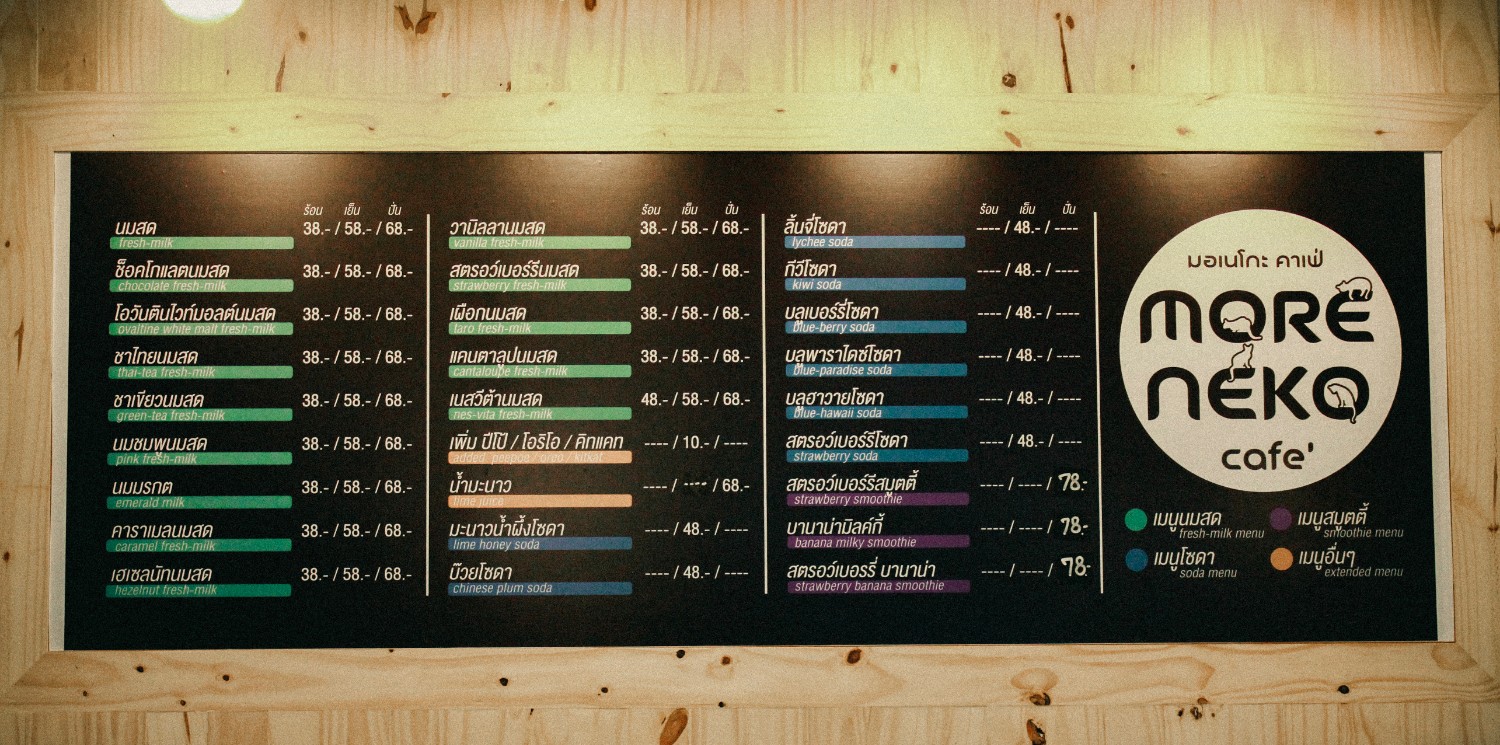 ร้อน เย็น ปั่น
นมสด 38.- / 58.- / 68.-
fresh-milk
ช็อคโกแลตนมสด 38.- / 58.- / 68.-
chocolate fresh-milk
โอวันตินไวท์มอลต์นมสด 38.- / 58.- / 68.-
ovaltine white malt fresh-milk
ชาไทยนมสด 38.- / 58.- / 68.-
thai-tea fresh-milk
ชาเขียวนมสด 38.- / 58.- / 68.-
green-tea fresh-milk
นมชมพูนมสด 38.- / 58.- / 68.-
pink fresh-milk
นมมรกต 38.- / 58.- / 68.-
emerald milk
คาราเมลนมสด 38.- / 58.- / 68.-
caramel fresh-milk
เฮเซลนัทนมสด 38.- / 58.- / 68.-
hezelnut fresh-milk
ร้อน เย็น ปั่น
วานิลลานมสด 38.- / 58.- / 68.-
vanilla fresh-milk
สตรอว์เบอร์รีนมสด 38.- / 58.- / 68.-
strawberry fresh-milk
เผือกนมสด 38.- / 58.- / 68.-
taro fresh-milk
แคนตาลูปนมสด 38.- / 58.- / 68.-
cantaloupe fresh-milk
เนสวีต้านมสด 48.- / 58.- / 68.-
nes-vita fresh-milk
เพิ่ม ปีโป้ / โอริโอ / คิทแคท ---- / 10.- / ----
added peepoe / oreo / kitkat
น้ำมะนาว ---- / ---- / 68.-
lime juice
มะนาวน้ำผึ้งโซดา ---- / 48.- / ----
lime honey soda
บ๊วยโซดา ---- / 48.- / ----
chinese plum soda
ร้อน เย็น ปั่น
ลิ้นจี่โซดา ---- / 48.- / ----
lychee soda
กีวีโซดา ---- / 48.- / ----
kiwi soda
บลูเบอร์รี่โซดา ---- / 48.- / ----
blue-berry soda
บลูพาราไดซ์โซดา ---- / 48.- / ----
blue-paradise soda
บลูฮาวายโซดา ---- / 48.- / ----
blue-hawaii soda
สตรอว์เบอร์รีโซดา ---- / 48.- / ----
strawberry soda
สตรอว์เบอร์รีสมูตตี้ ---- / ---- / 78.-
strawberry smoothie
บานาน่ามิลค์กี้ ---- / ---- / 78.-
banana milky smoothie
สตรอว์เบอรรี่ บานาน่า ---- / ---- / 78.-
strawberry banana smoothie
มอเนโกะ คาเฟ่
MORE
NEKO
cafe'
เมนูนมสด
fresh-milk menu
เมนูสมูตตี้
smoothie menu
เมนูโซดา
soda menu
เมนูอื่นๆ
extended menu